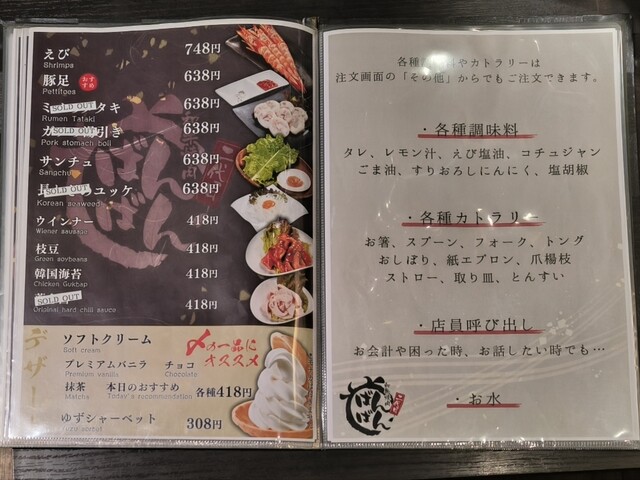 えび 748円
Shrimps
豚足 おすすめ 638円
Pettitoes
ミ SOLD OUT タキ 638円
Rumen Tataki
ガ SOLD OUT 引き 638円
Pork stomach boil
サンチュ 638円
Sangchu
SOLD OUT ユッケ 638円
Korean seaweed
ウインナー 418円
Wiener sausage
枝豆 418円
Green soybeans
韓国海苔 418円
Chicken Gukbap
SOLD OUT 418円
Original hard chili sauce
デザー
ソフトクリーム
Soft cream
〆の一品に
オススメ
プレミアムバニラ チョコ
Premium vanilla Chocolate
抹茶 本日のおすすめ 各種418円
Matcha Today's recommendation
ゆずシャーベット 308円
二代目
ばんばん
各種調味料やカトラリーは
注文画面の「その他」からでもご注文できます。
・各種調味料
タレ、レモン汁、えび塩油、コチュジャン
ごま油、すりおろしにんにく、塩胡椒
・各種カトラリー
お箸、スプーン、フォーク、トング
おしぼり、紙エプロン、爪楊枝
ストロー、取り皿、とんすい
・店員呼び出し
お会計や困った時、お話したい時でも…
・お水
ばんばん